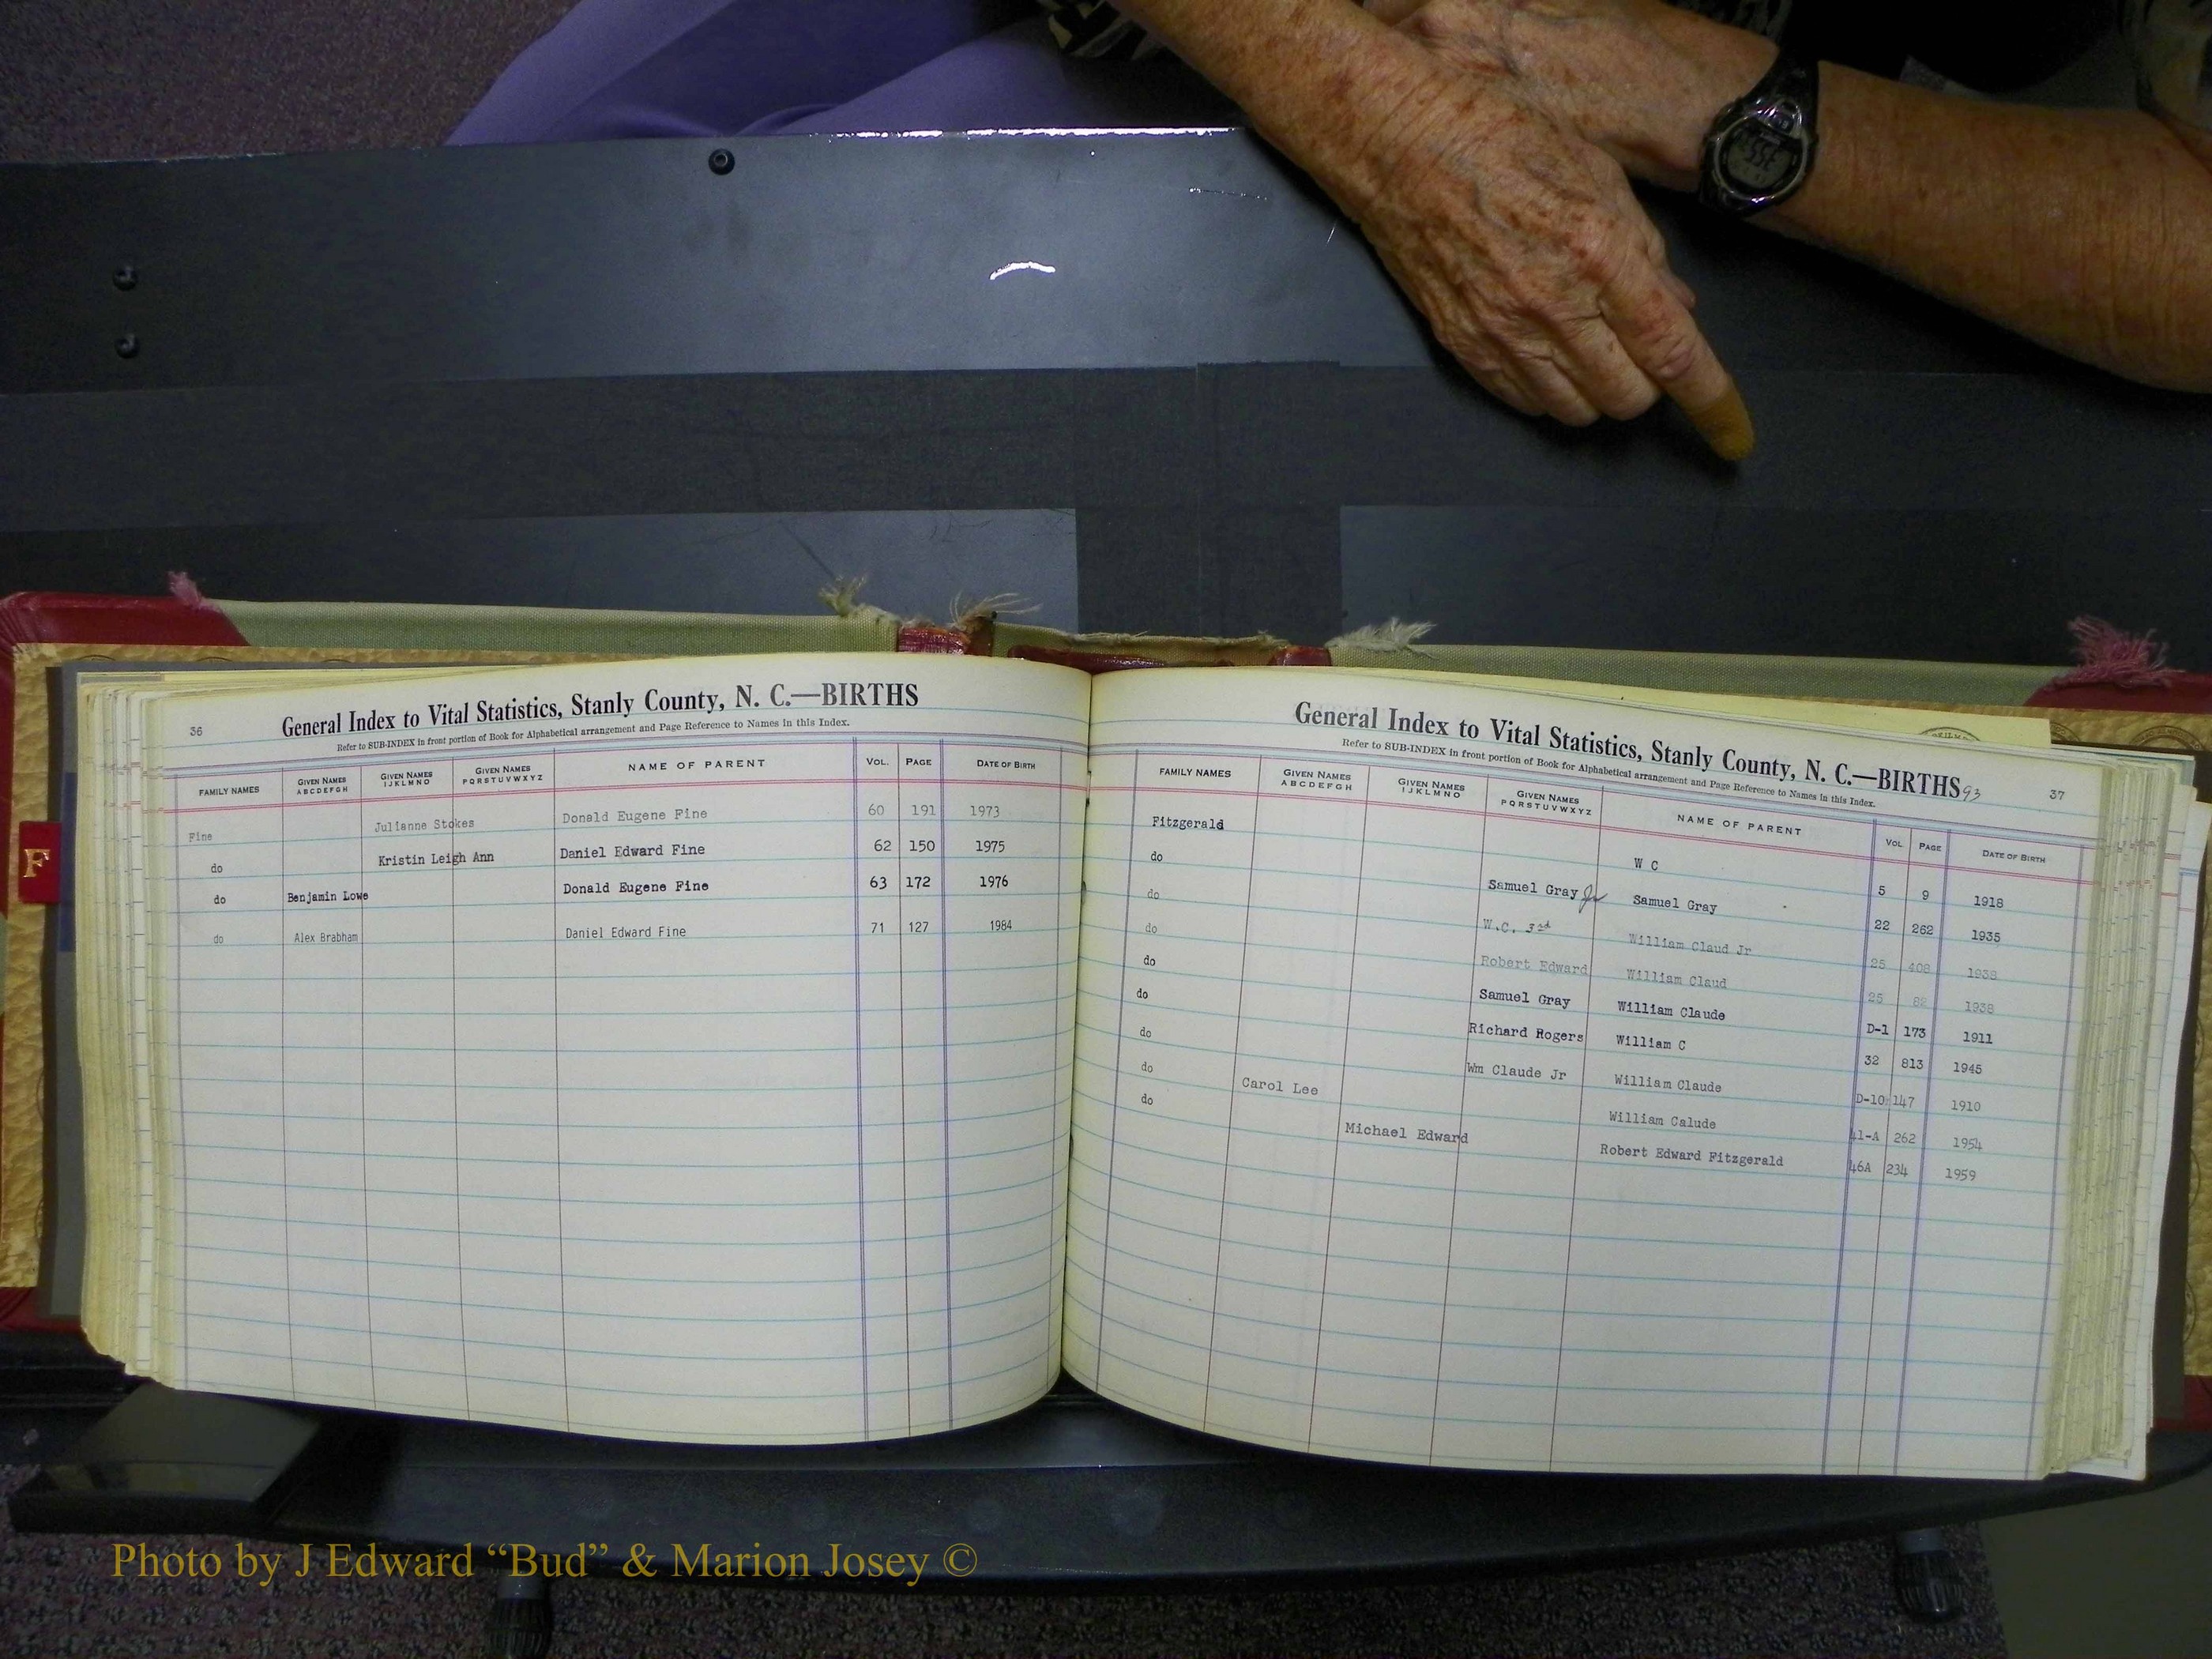 36
General Index to Vital Statistics, Stanly County, N. C.—BIRTHS
Refer to SUB-INDEX in front portion of Book for Alphabetical arrangement and Page Reference to Names in this Index.
FAMILY NAMES GIVEN NAMES ABCDEFGH GIVEN NAMES IJKLMNO GIVEN NAMES PQRSTUVWXYZ NAME OF PARENT VOL. PAGE DATE OF BIRTH
Fine Julianne Stokes Donald Eugene Fine 60 191 1973
do Kristin Leigh Ann Daniel Edward Fine 62 150 1975
do Benjamin Lowe Donald Eugene Fine 63 172 1976
do Alex Brabham Daniel Edward Fine 71 127 1984
F
General Index to Vital Statistics, Stanly County, N. C.—BIRTHS 93
37
Refer to SUB-INDEX in front portion of Book for Alphabetical arrangement and Page Reference to Names in this Index.
FAMILY NAMES GIVEN NAMES ABCDEFGH GIVEN NAMES IJKLMNO GIVEN NAMES PQRSTUVWXYZ NAME OF PARENT VOL. PAGE DATE OF BIRTH
Fitzgerald W C 5 9 1918
do Samuel Gray Jr Samuel Gray 22 262 1935
do W.C. 3rd William Claud Jr 25 408 1938
do Robert Edward William Claud 25 82 1938
do Samuel Gray William Claude D-1 173 1911
do Richard Rogers William C 32 813 1945
do Wm Claude Jr William Claude D-10 147 1910
do Carol Lee William Calude 41-A 262 1954
do Michael Edward Robert Edward Fitzgerald 46A 234 1959
Photo by J Edward “Bud” & Marion Josey ©